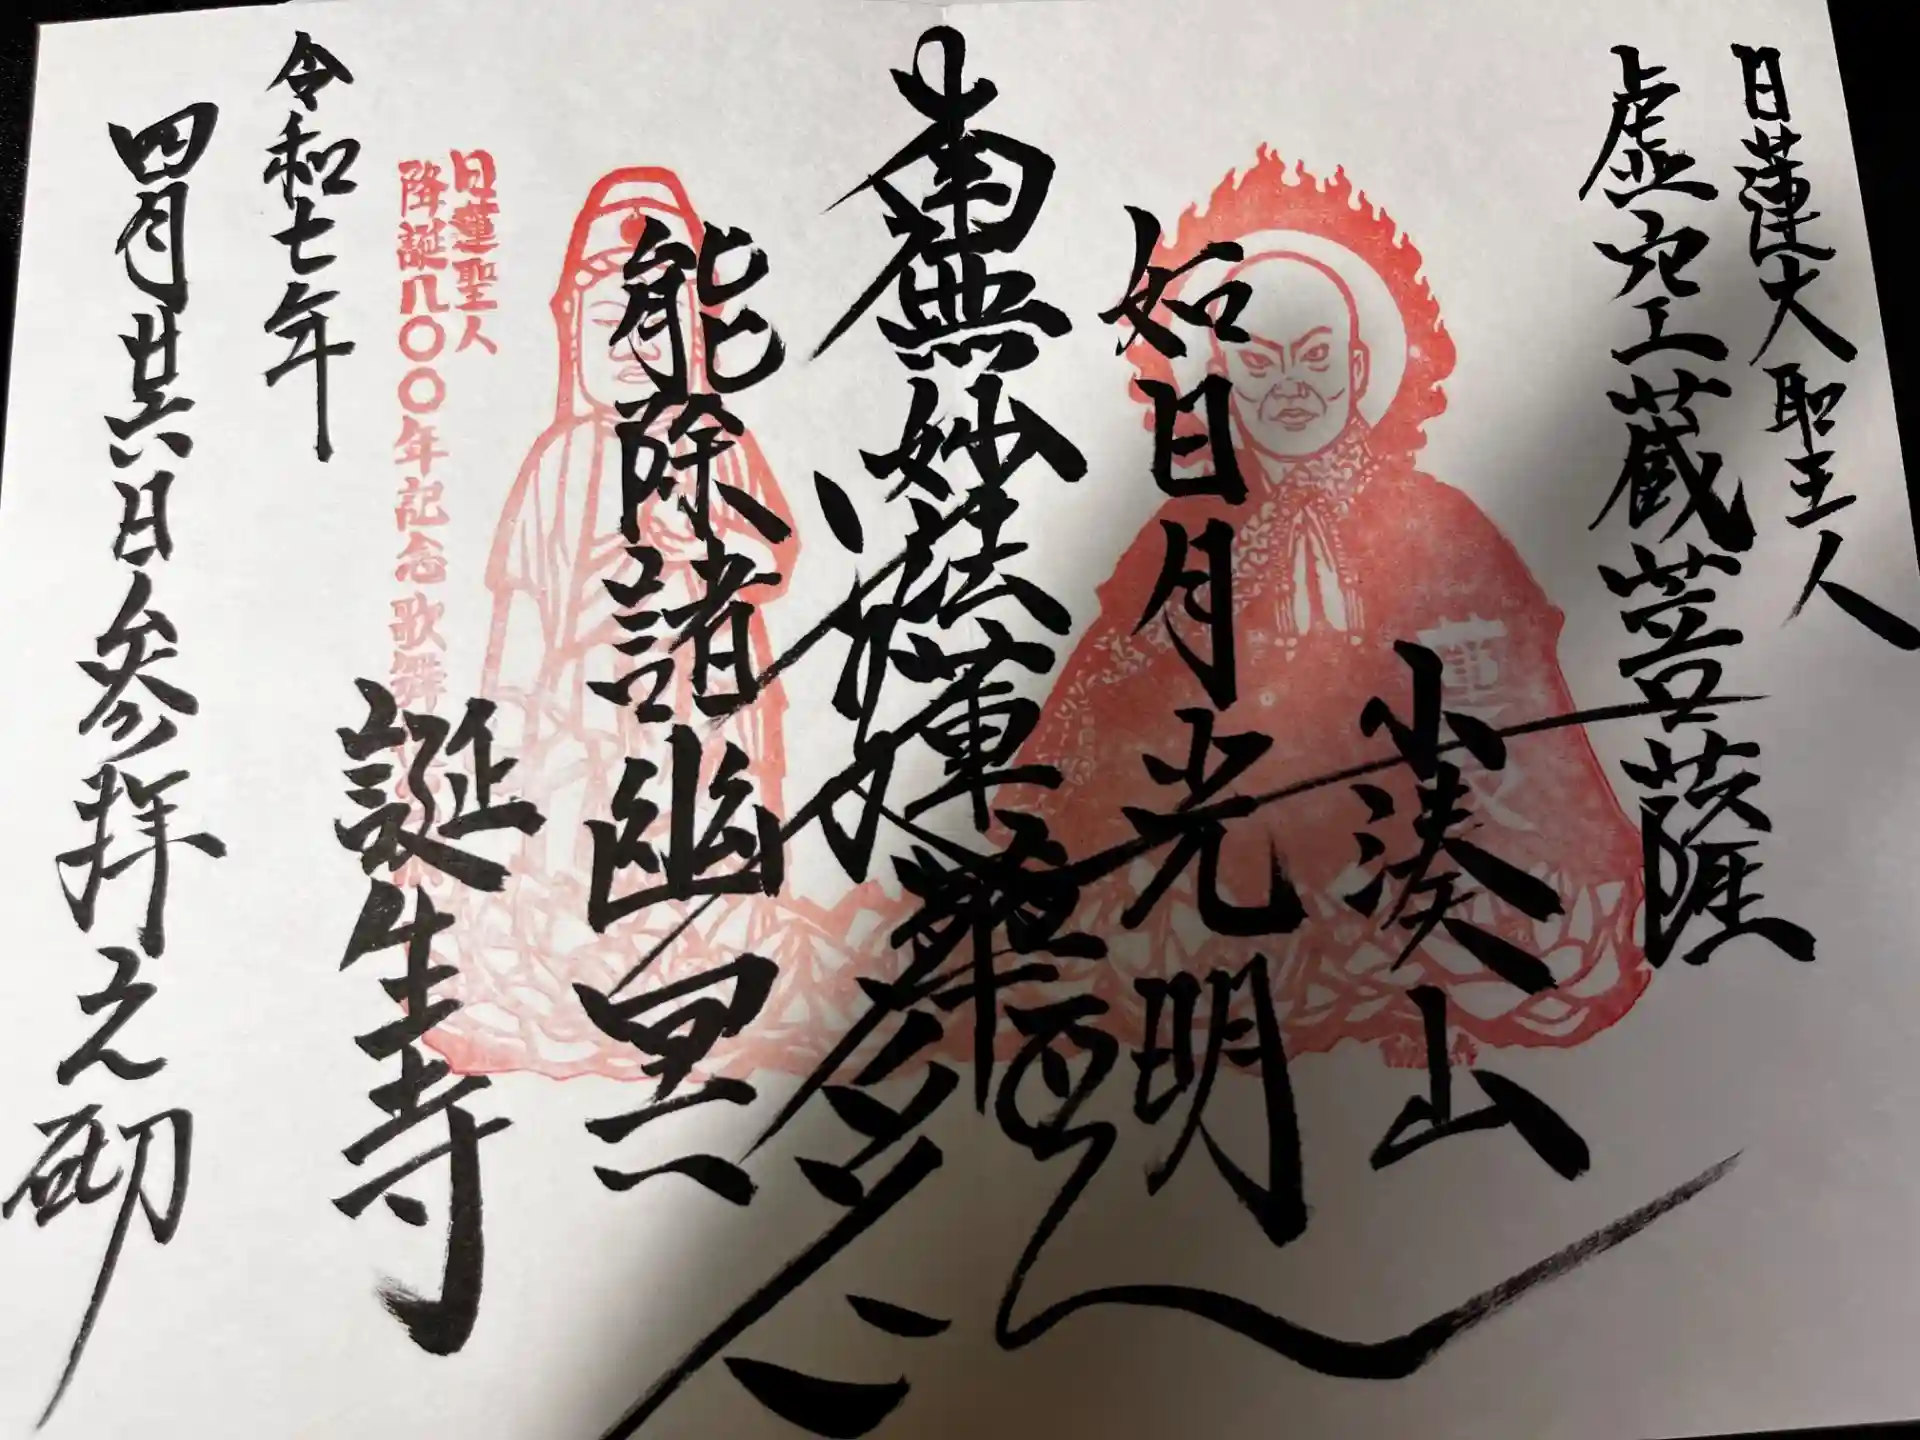 日蓮大聖人
虚空蔵菩薩
小湊山
如日月光明
南無妙法蓮華経
能除諸幽冥
誕生寺
日蓮聖人
降誕八〇〇年記念歌舞
令和七年
四月廿六日参拝之砌